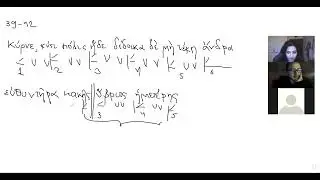 39-42
Κύρνε, κύει πόλις ἥδε δέδοικα δὲ μὴ τέκῃ ἄνδρα
1 2 3 4 5 6
εὐθυντῆρα κακῆς || ὕβριος ἡμετέρης
3 4 5